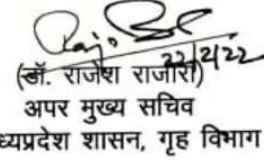 22/2/22
(डॉ. राजेश राजौरा)
अपर मुख्य सचिव
ध्यप्रदेश शासन, गृह विभाग